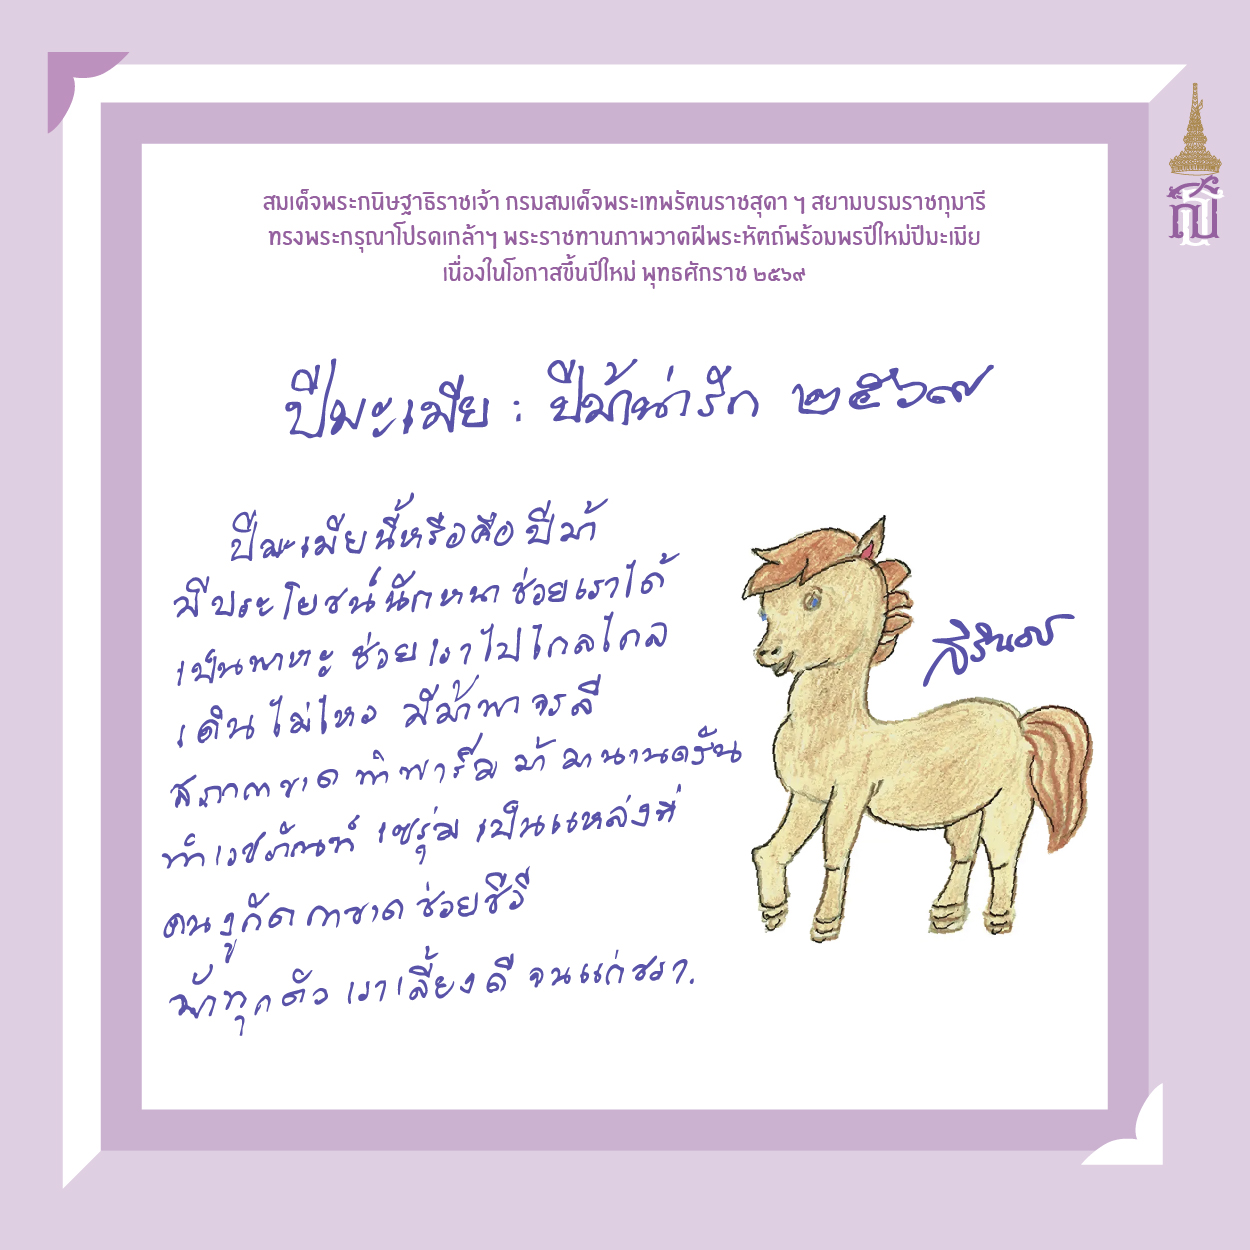 สมเด็จพระกนิษฐาธิราชเจ้า กรมสมเด็จพระเทพรัตนราชสุดา ฯ สยามบรมราชกุมารี
ทรงพระกรุณาโปรดเกล้าฯ พระราชทานภาพวาดฝีพระหัตถ์พร้อมพรปีใหม่ปีมะเมีย
เนื่องในโอกาสขึ้นปีใหม่ พุทธศักราช ๒๕๖๙
ปีมะเมีย : ปีม้าน่ารัก ๒๕๖๙
ปีมะเมียนี้หรือคือปีม้า
มีประโยชน์นักหนาช่วยเราได้
เป็นพาหะช่วยเราไปไกลไกล
เดินไม่ไหว มีม้าพาจรลี
สภากาชาดทำฟาร์มม้ามานานครัน
ทำเวชภัณฑ์ เซรุ่ม เป็นแหล่งที่
คนงูกัดกาชาดช่วยชีวี
ม้าทุกตัวเราเลี้ยงดี จนแก่ชรา.
สิรินธร